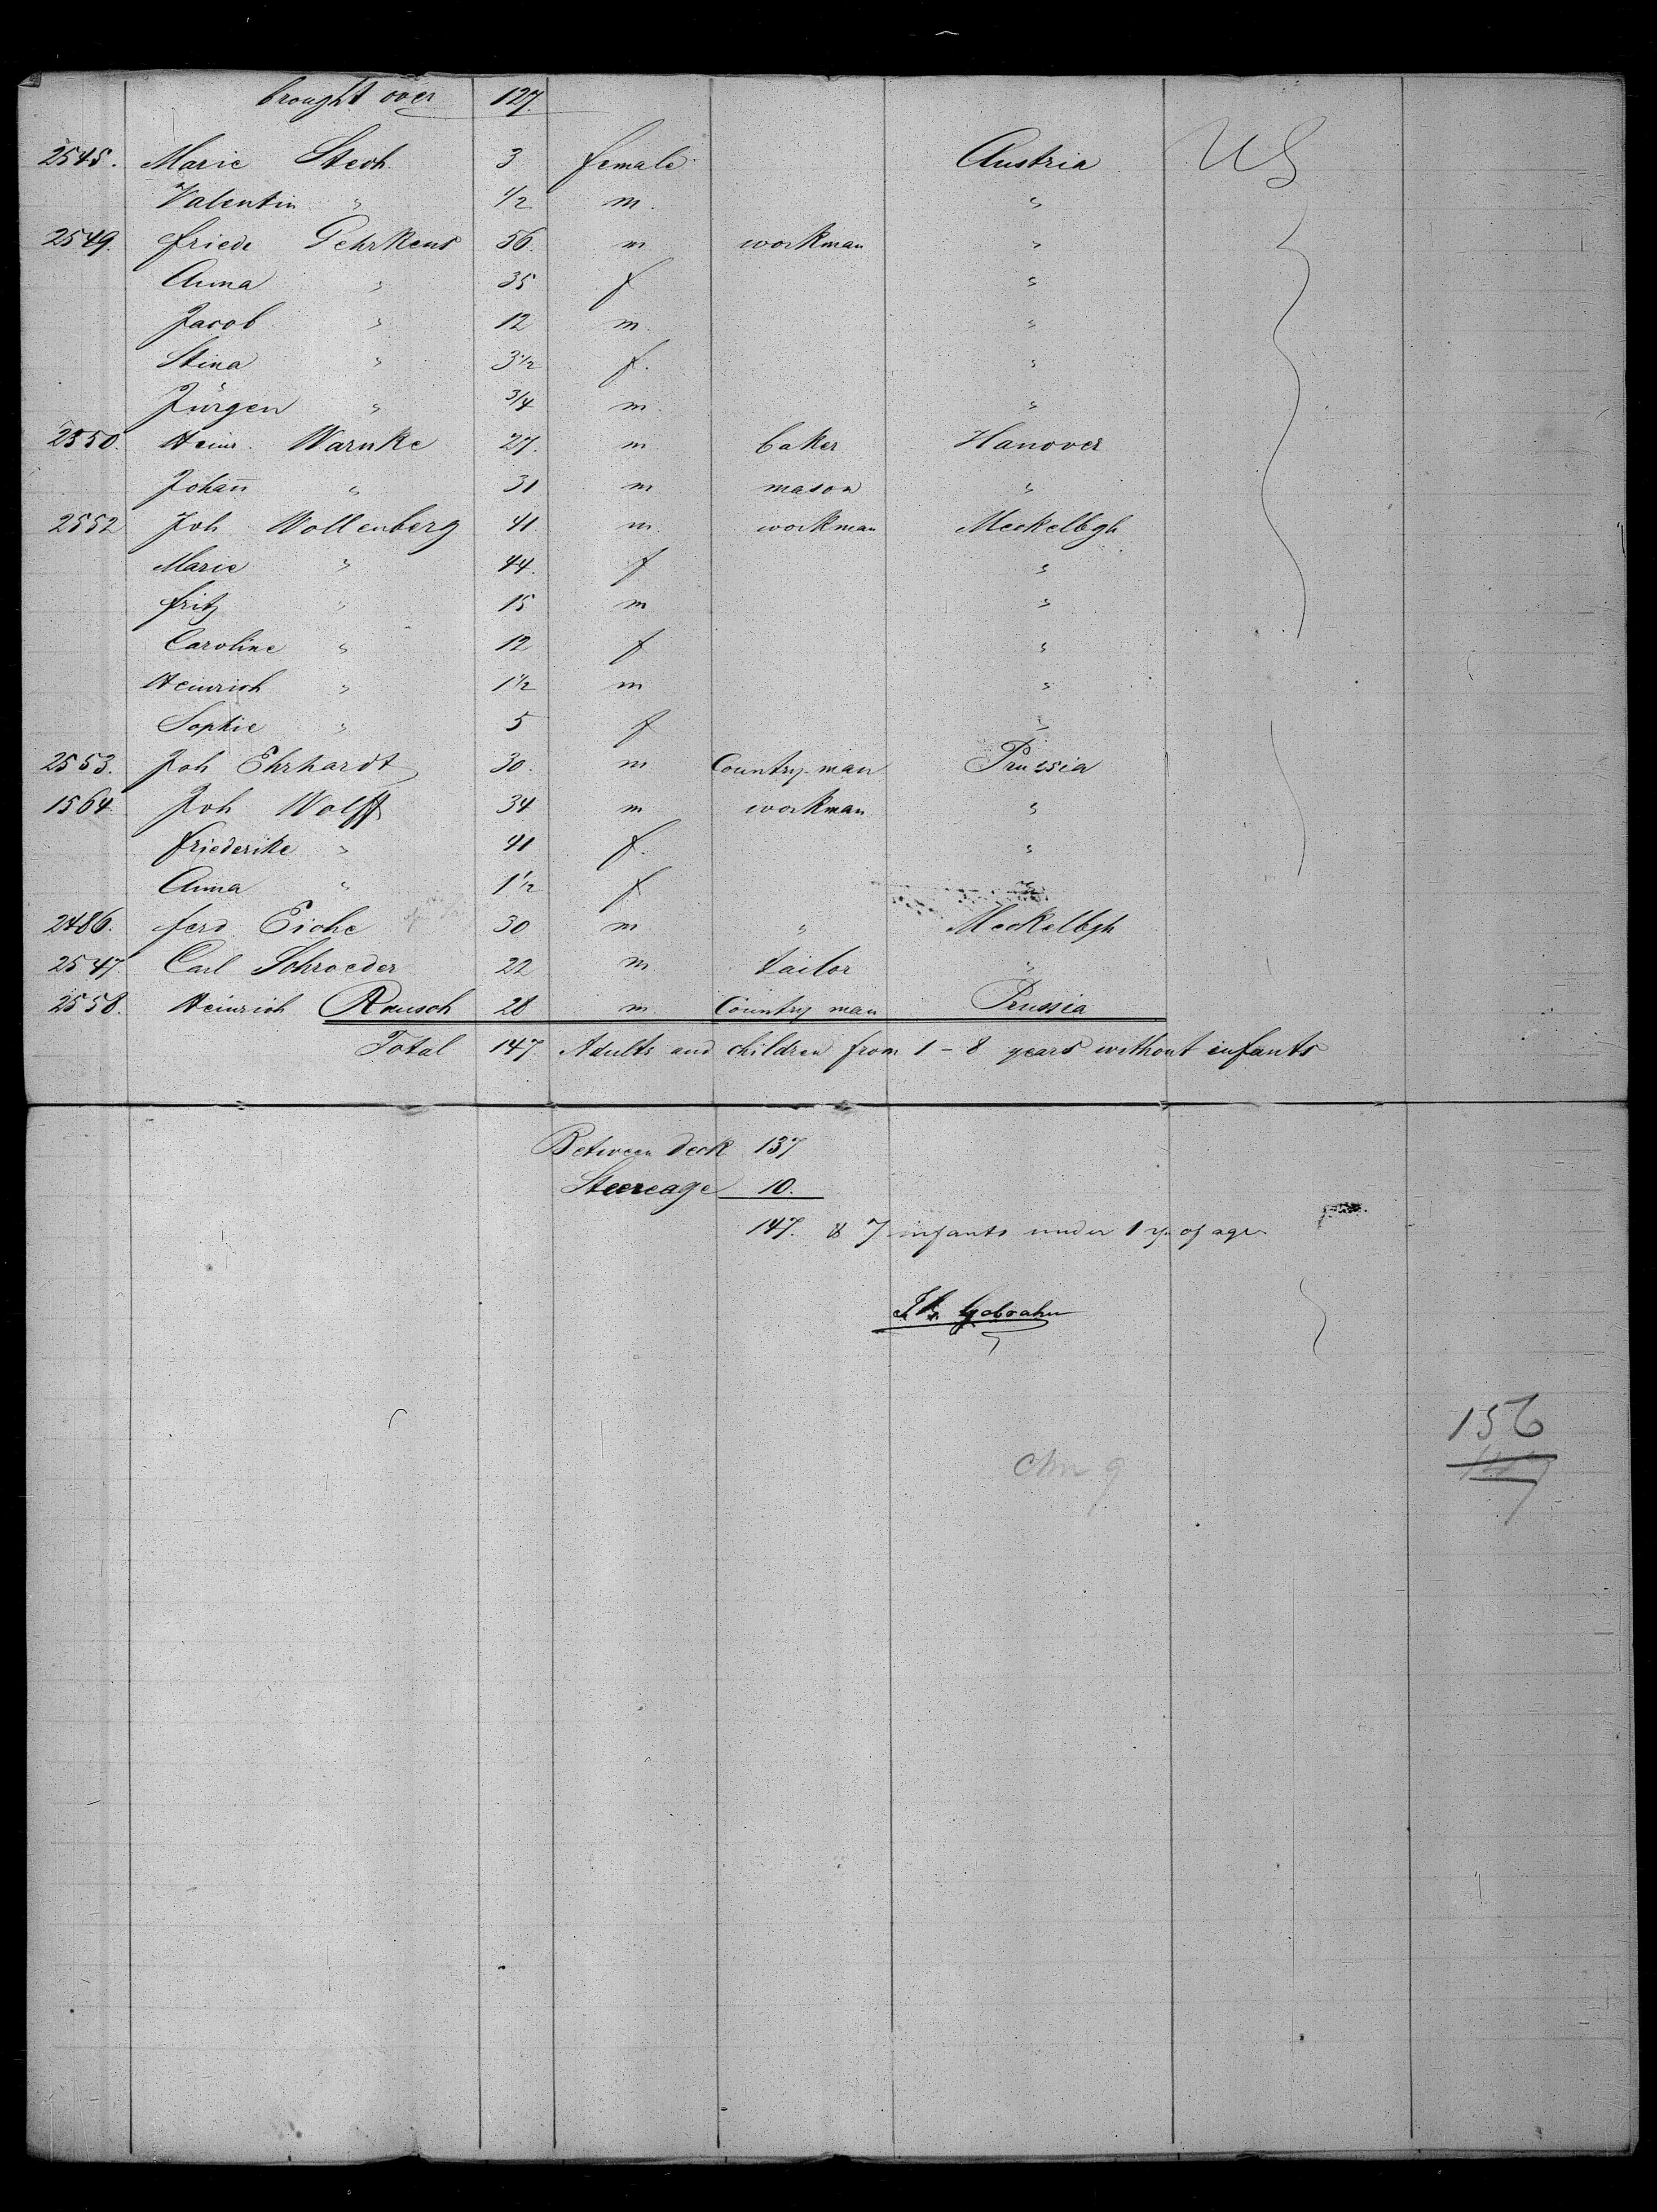 brought over 127.
2545. Marie Stech 3 female Austria US
Valentin " 1/2 m. "
2549. Friede Gehrkens 56. m workman "
Anna " 35 f "
Jacob " 12 m. "
Stina " 3 1/2 f. "
Jürgen " 3/4 m. "
2550. Heinr. Warnke 27. m baker Hanover
Johañ " 31 m mason "
2552 Joh Wollenberg 41. m. workman Meckelbgh
Marie " 44. f "
Fritz " 15 m "
Caroline " 12 f "
Heinrich " 1 1/2 m "
Sophie " 5 f "
2553. Joh Ehrhardt 30. m Country-man Prussia
1564. Joh Wolff 34 m workman "
Friederike " 41 f. "
Anna " 1 1/2 f "
2486. Ferd. Eiche 30 m " Meckelbgh
2547. Carl Schroeder 22 m tailor "
2558. Heinrich Rausch 28 m. Country man Prussia
Total 147 Adults and children from 1-8 years without infants
Between deck 137
Steereage 10.
147. & 7 infants under 1 yr of age
156